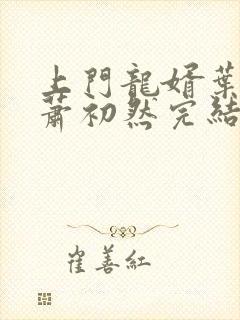 上門龍婿葉
蕭初然完結
崔善紅